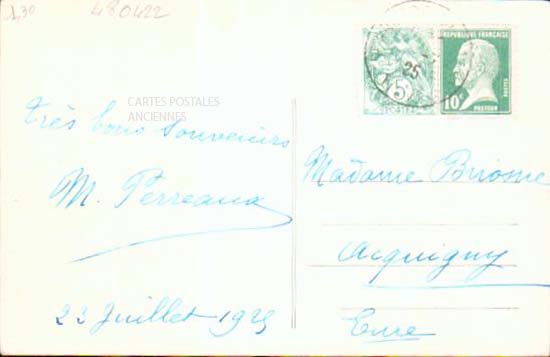 1,30
480422
CARTES POSTALES
ANCIENNES
très bons souvenirs
M. Perreaux
23 Juillet 1925
REPUBLIQUE FRANÇAISE
POSTES
10c
PASTEUR
5
25
Madame Briosne
Acquigny
Eure